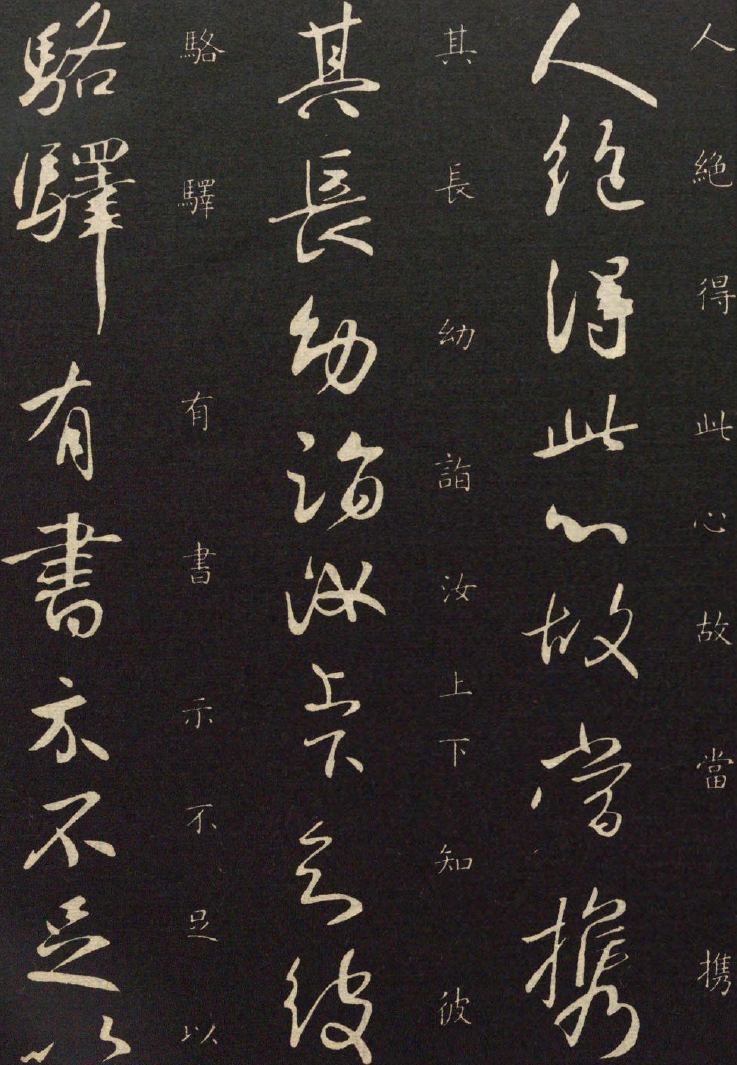 人絶得此心故當攜
人絶得此心故當携
其長幼詣汝上下知彼
其長幼詣汝上下知彼
駱驛有書示不足以
駱驛有書示不足以